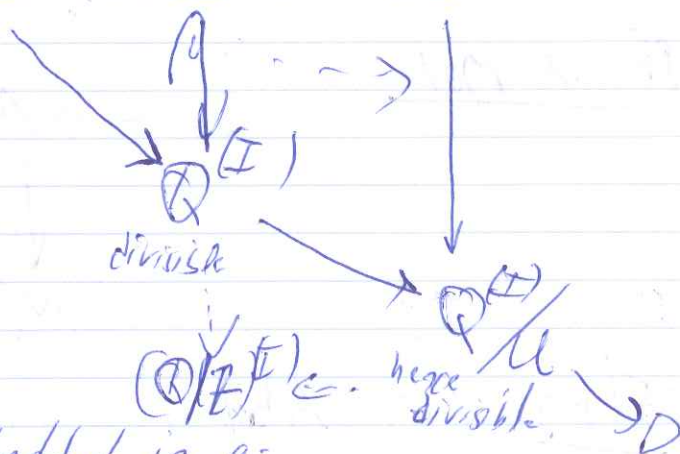 ℚ^(I)
divisible
ℚ^(I)/U
(ℚ/ℤ)^(I)
hence
divisible.
D